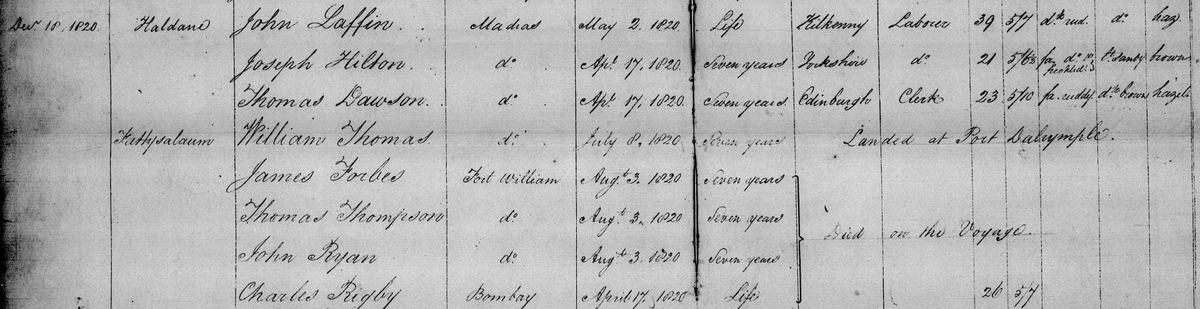 Decr 18, 1820. Haldane John Laffin Madras May 2. 1820. Life Kilkenny Labourer 39 5/7 dk rud. do haz
Joseph Hilton do Apl 17, 1820. Seven years Yorkshire do 21 fa sandy brown
freckled
Thomas Dawson do Apl 17, 1820. Seven years Edinburgh Clerk 23 5/10 fa. ruddy brown hazel
William Thomas do July 8, 1820 Seven years Landed at Port Dalrymple.
James Forbes Fort William Augt 3. 1820 Seven years
Thomas Thompson do Augt 3. 1820 Seven years
Died on the Voyage
John Ryan do Augt 3. 1820 Seven years
Charles Rigby Bombay April 17. 1820 Life 26 5/7